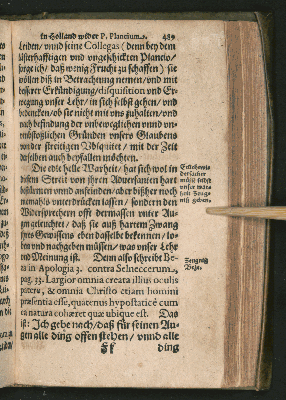 in Holland wider P. Plancium. 489
Leiden/ vnnd seine Collegas (denn bey dem
lästerhafftigen vnd vngeschickten Plancio/
sorge ich/ daß wenig Frucht zu schaffen) sie
wöllen diß in Betrachtung nemen/ vnd mit
besserer Erkündigung/ disquisition vnd Er-
wegung vnser Lehr/ in sich selbst gehen/ vnd
bedencken/ ob sie nicht mit vns zuhalten/ vnd
nach befindung der vnbeweglichen vnnd vn-
umbstoßlichen Gründen vnsers Glaubens
von der streitigen Vbiquitet/ mit der Zeit
derselben auch beyfallen möchten.
Die edle helle Warheit/ hat sich wol in
diesem Streit von ihren Adversanten hart
bestürmen vnnd anfeinden/ aber bißher noch
niemahls vnterdrucken lassen/ sondern den
Widersprechern offt dermassen vnter Au-
gen geleuchtet/ daß sie auß hartem Zwang
jres Gewissens eben dasselbe bekennen/ sa-
gen vnd nachgeben müssen/ was vnser Lehr
vnd Meinung ist. Denn also schreibt Be-
za in Apologia 3. contra Selneccerum,
pag. 33. Largior omnia creata illius oculis
patere, & omnia Christo etiam homini
præsentia esse, quatenus hypostaticè cum
ea natura cohæret quæ ubique est. Das
ist: Ich gebe nach/ daß für seinen Au-
gen alle ding offen stehen/ vnnd alle
Ff ding
müssen offt
vnser war-
heit Zeug-
nis geben.
Zeugnis
Bezæ.